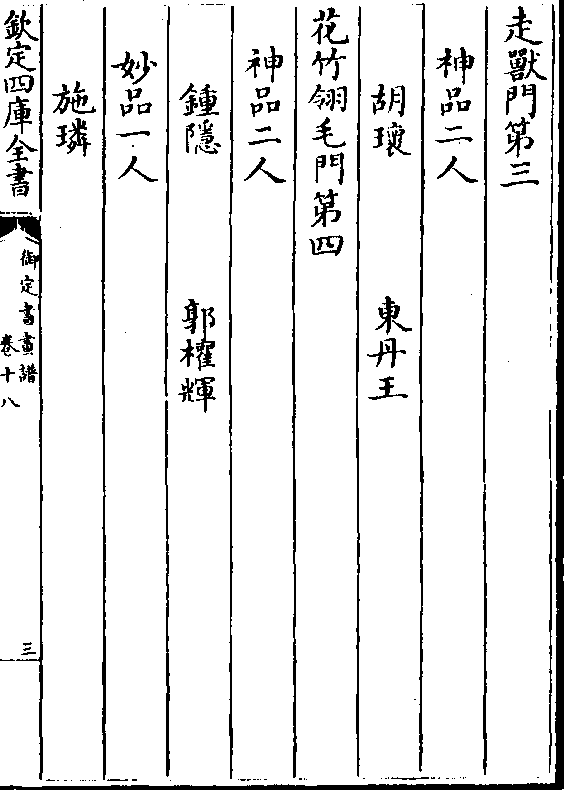 走獸門第三
神品二人
胡瓌　東丹王
花竹翎毛門第四
神品二人
鍾隱　郭權輝
妙品一人
施璘
欽定四庫全書
御定書畫譜
卷十八
三